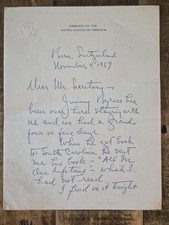 EMBASSY OF THE
UNITED STATES OF AMERICA
Bern, Switzerland
November 4, 1959
Dear Mr. Secretary -
Jimmy Byrnes has
been over here staying with
us and we had a grand
four or five days.
When he got back
to South Carolina he sent
me his book - "All In
One Lifetime" - which I
had not read
I find in it tonight